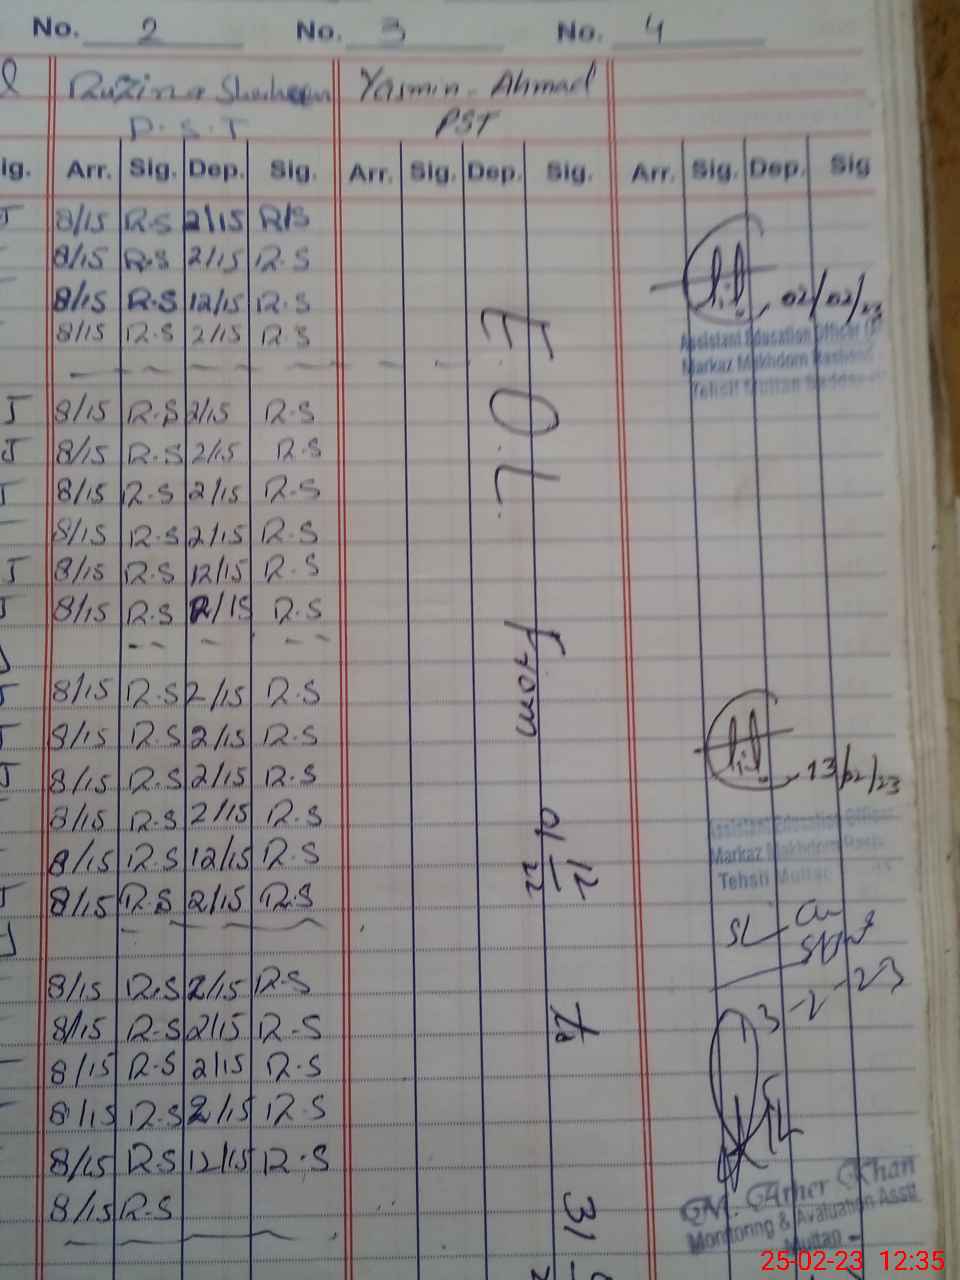 No. 2 No. 3 No. 4
Ruzina Shaheen Yasmin Ahmad
P.S.T PST
ig. Arr. Sig. Dep. Sig. Arr. Sig. Dep. Sig. Arr. Sig. Dep. Sig
8/15 R.S 2/15 R/S
8/15 R.S 2/15 R.S
8/15 R.S 12/15 R.S
02/02/23
8/15 R.S 2/15 R.S
Assistant Education Officer
Markaz Makhdom Rashid
Tehsil Multan Saddar
8/15 R.S 2/15 R.S
8/15 R.S 2/15 R.S
8/15 R.S 2/15 R.S
8/15 R.S 2/15 R.S
8/15 R.S 12/15 R.S
8/15 R.S 2/15 R.S
from
8/15 R.S 2/15 R.S
8/15 R.S 2/15 R.S
8/15 R.S 2/15 R.S
13/02/23
8/15 R.S 2/15 R.S
Assistant Education Officer
8/15 R.S 12/15 R.S
Markaz Makhdom Rash
Tehsil Multan
8/15 R.S 2/15 R.S
SL
8/15 R.S 2/15 R.S
to
8/15 R.S 2/15 R.S
8/15 R.S 2/15 R.S
8/15 R.S 2/15 R.S
8/15 R.S 12/15 R.S
8/15 R.S
31
M. Amer Khan
Monitoring & Evaluation Asstt
Multan
25-02-23 12:35